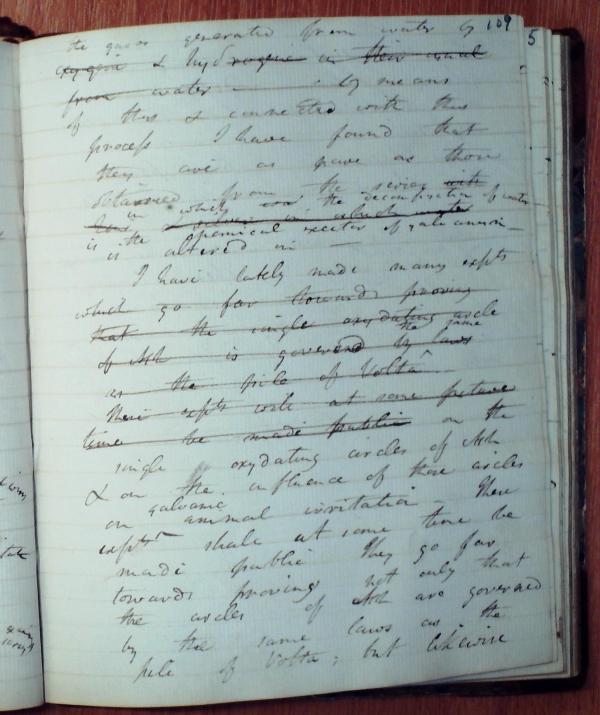 109
5
the gases generated from water by
oxygen & hydrogene in their usual
from water — by means
of this & connected with this
process I have found that
they are as pure as those
obtained from the series with
in which the decomposition of water
is the chemical exciter of galvanism —
is altered in —
I have lately made many expts
which go far towards proving
that the single oxydating circle
of Ash is governed by the same laws
as the pile of Volta
These expts will at some future
time be made public on the
single oxydating circles of Ash
& on the influence of these circles
on galvanic animal irritation — These
expts shall at some time be
made public They go far
towards proving not only that
the circles of Ash are governed
by the same laws as the
pile of Volta; but likewise